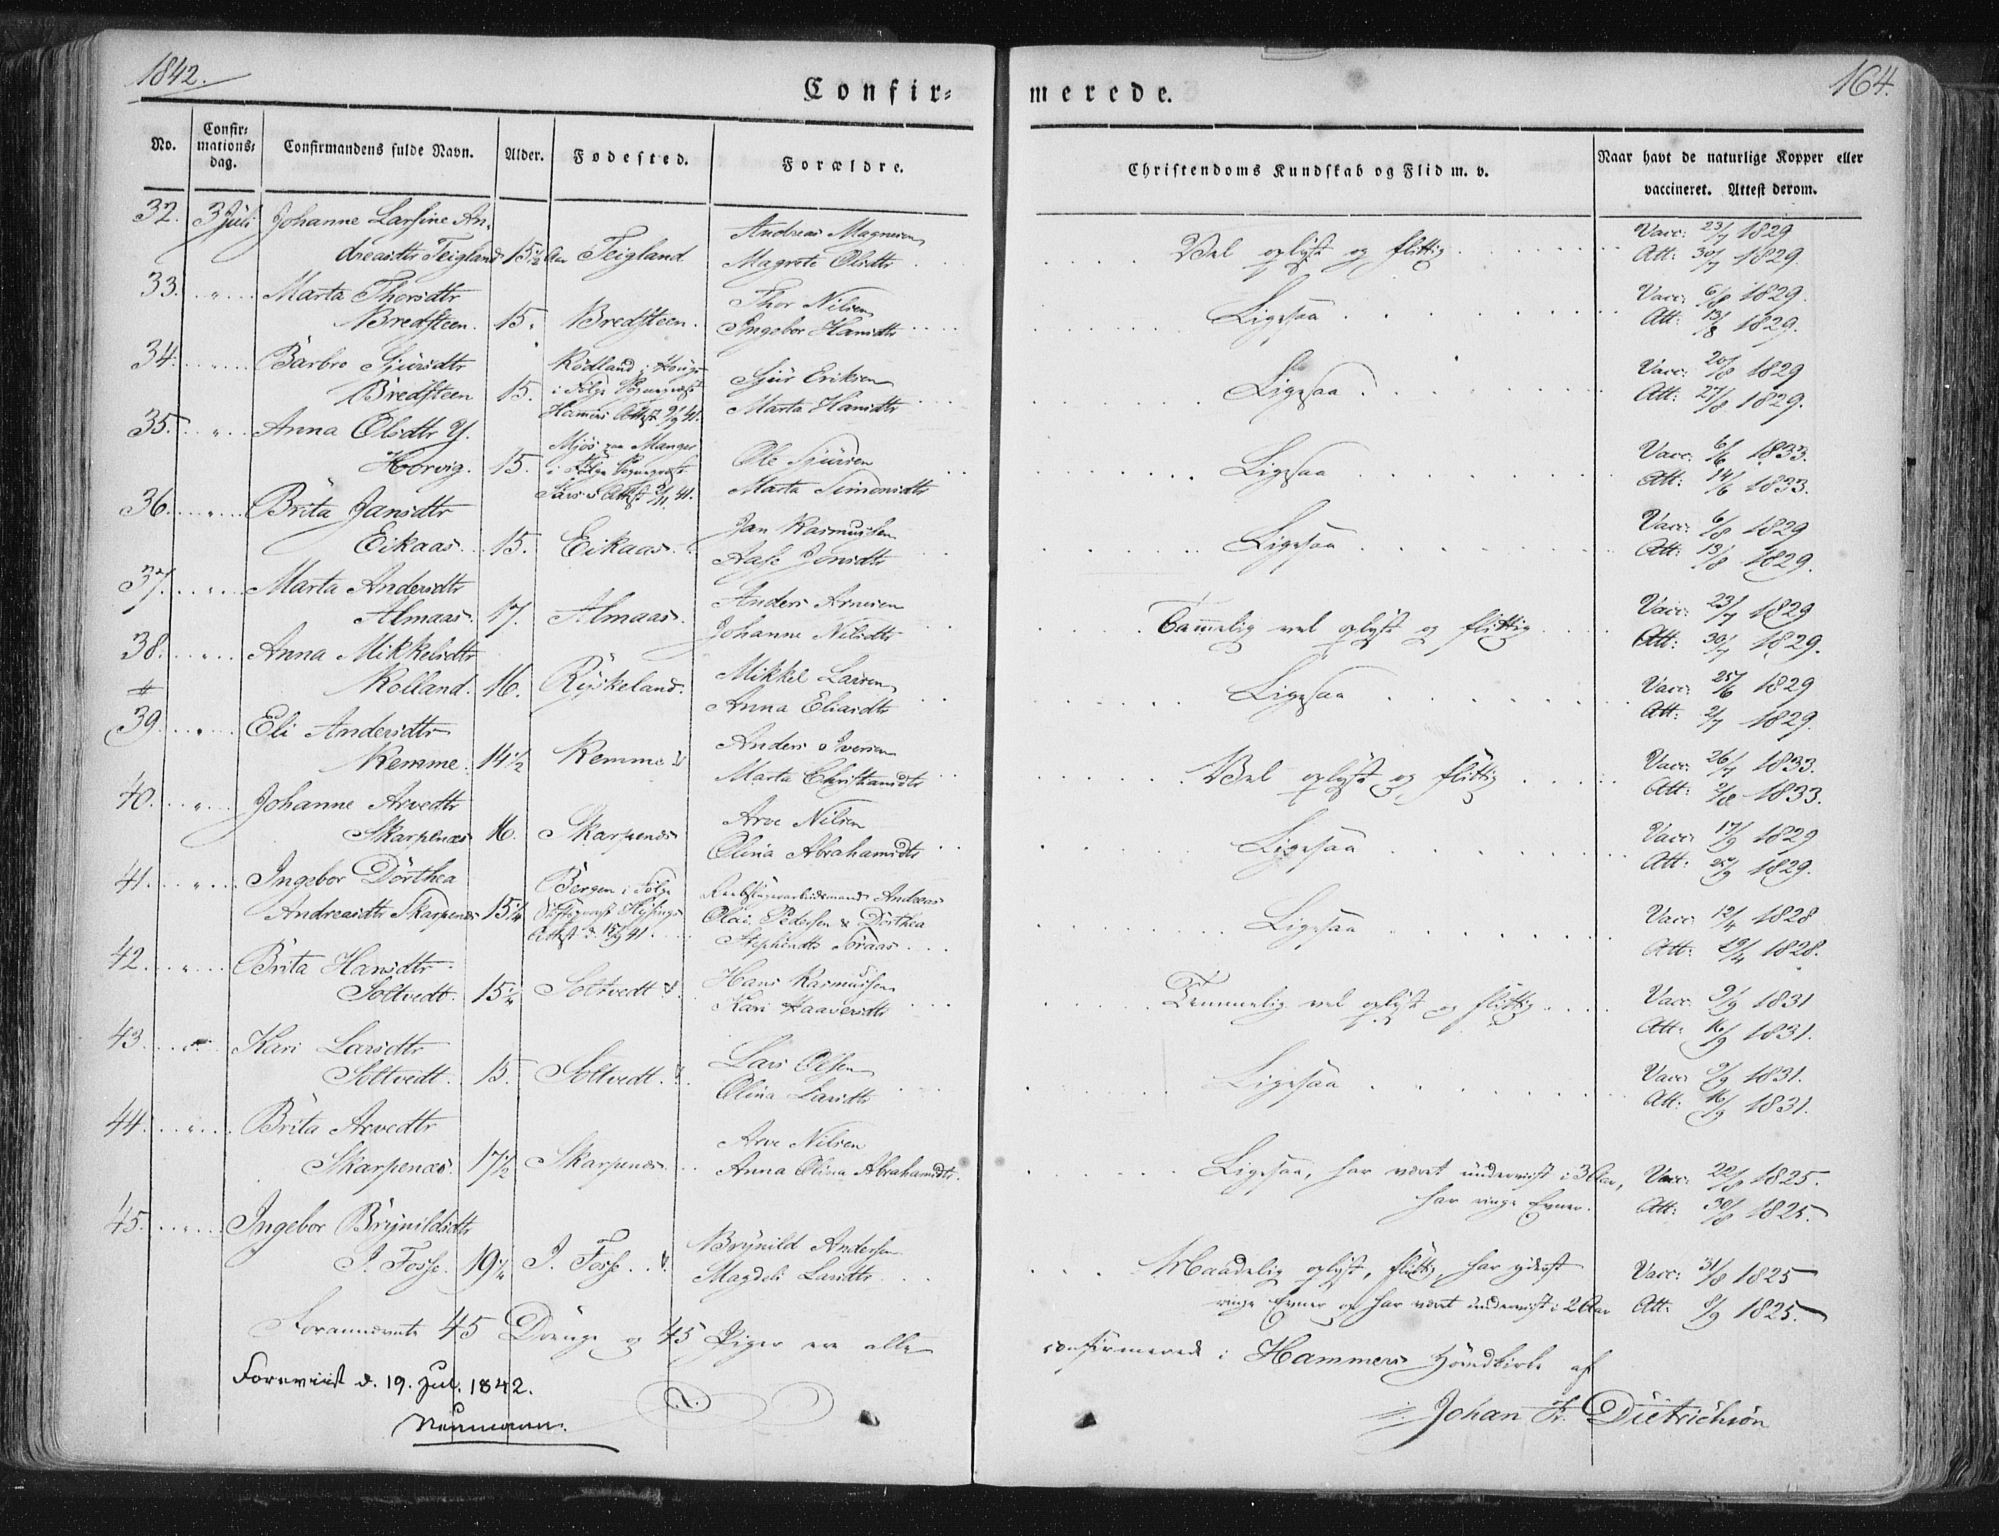 1842.
164.
Confir= merede.
No.
Confir=
mations=
dag.
Confirmandens fulde Navn.
Alder.
Fødested.
Forældre.
Christendoms Kundskab og Flid m. v.
Naar havt de naturlige Kopper eller
vaccineret. Attest derom.
32. 3 Juli Johanne Larsine An=
dreasdtr Teigland 15 1/2 Aar Teigland
Andreas Magnesen
Magrete Olsdtr
Vel oplyst og flittig
Vacc: 23/7 1829
Att: 30/7 1829.
33. " Marta Thorsdtr
Bredsteen. 15. Bredsteen.
Thor Nilsen
Ingebor Hansdtr
Ligesaa
Vacc: 6/8 1829.
Att: 13/8 1829.
34. " Barbro Sjursdtr
Bredsteen 15.
Rödland i Houge
i Følge Sognepræst
Hammers Attest 9/9 41.
Sjur Eriksen
Marta Hansdtr
Ligesaa
Vacc: 20/8 1829
Att: 27/8 1829.
35. " Anna Olsdtr Y.
Horvig. 15.
Mjös paa Manger
i Følge Sognepræst
Attest 41.
Ole Sjursen
Marta Simonsdtr
Ligesaa
Vacc: 6/6 1833.
Att: 14/6 1833.
36. " Brita Jansdtr
Eikaas 15. Eikaas
Jan Rasmussen
Aase Jonsdtr
Ligesaa
Vacc: 6/8 1829
Att: 13/8 1829.
37. " Marta Andersdtr
Almaas. 17. Almaas.
Anders Arnesen
Johanne Nilsdtr
Temmelig vel oplyst og flittig
Vacc: 23/7 1829
Att: 30/7 1829.
38. " Anna Mikkelsdtr
Kolland. 16. Ryskeland.
Mikkel Larsen
Anna Eliasdtr
Ligesaa
Vacc: 25/6 1829
Att: 2/7 1829.
39. " Eli Andersdtr
Remme. 14 1/2 Remme
Anders Iversen
Marta Christiansdtr
Vel oplyst og flittig
Vacc: 26/7 1833.
Att: 2/8 1833.
40. " Johanne Arvedtr
Skarpenæs 16. Skarpenæs
Arve Nilsen
Olina Abrahamsdtr
Ligesaa
Vacc: 17/9 1829
Att: 1829.
41. " Ingebor Dorthea
Andreasdtr Skarpenæs 15 1/4
Bergen i Følge
Attest d. 41.
Reebslagerarbeidsmand Andreas
Olai Pedersen & Dorthea
Stephensdtr Soraas
Ligesaa
Vacc: 12/4 1828
Att: 19/4 1828.
42. " Brita Hansdtr
Soltvedt. 15 1/4 Soltvedt
Hans Rasmussen
Kari Haaversdtr
Temmelig vel oplyst og flittig
Vacc: 9/9 1831
Att: 16/9 1831.
43. " Kari Larsdtr
Soltvedt. 15. Soltvedt.
Lars Olsen
Olina Larsdtr
Ligesaa
Vacc: 9/9 1831.
Att: 16/9 1831.
44. " Brita Arvedtr
Skarpenæs. 17 1/2 Skarpenæs.
Arve Nilsen
Anna Olina Abrahamsdtr.
Ligesaa, har været underviist i 3 Aar,
har ringe Evner.
Vacc: 22/8 1825.
Att: 30/8 1825.
45. " Ingebor Brynildsdtr
I. Fosse. 19 1/4 I. Fosse.
Brynild Andersen
Magdeli Larsdtr
Maadelig oplyst, flittig, har yderst
ringe Evner og har været underviist i 2 Aar
Vacc: 31/8 1825
Att: 8/9 1825.
Forannævnte 45 Drenge og 45 Piger ere alle
confirmerede i Hammers Hovedkirke af
Johan Fr. Dietrichson
Foreviist d. 19. Jul. 1842.
Neumann.